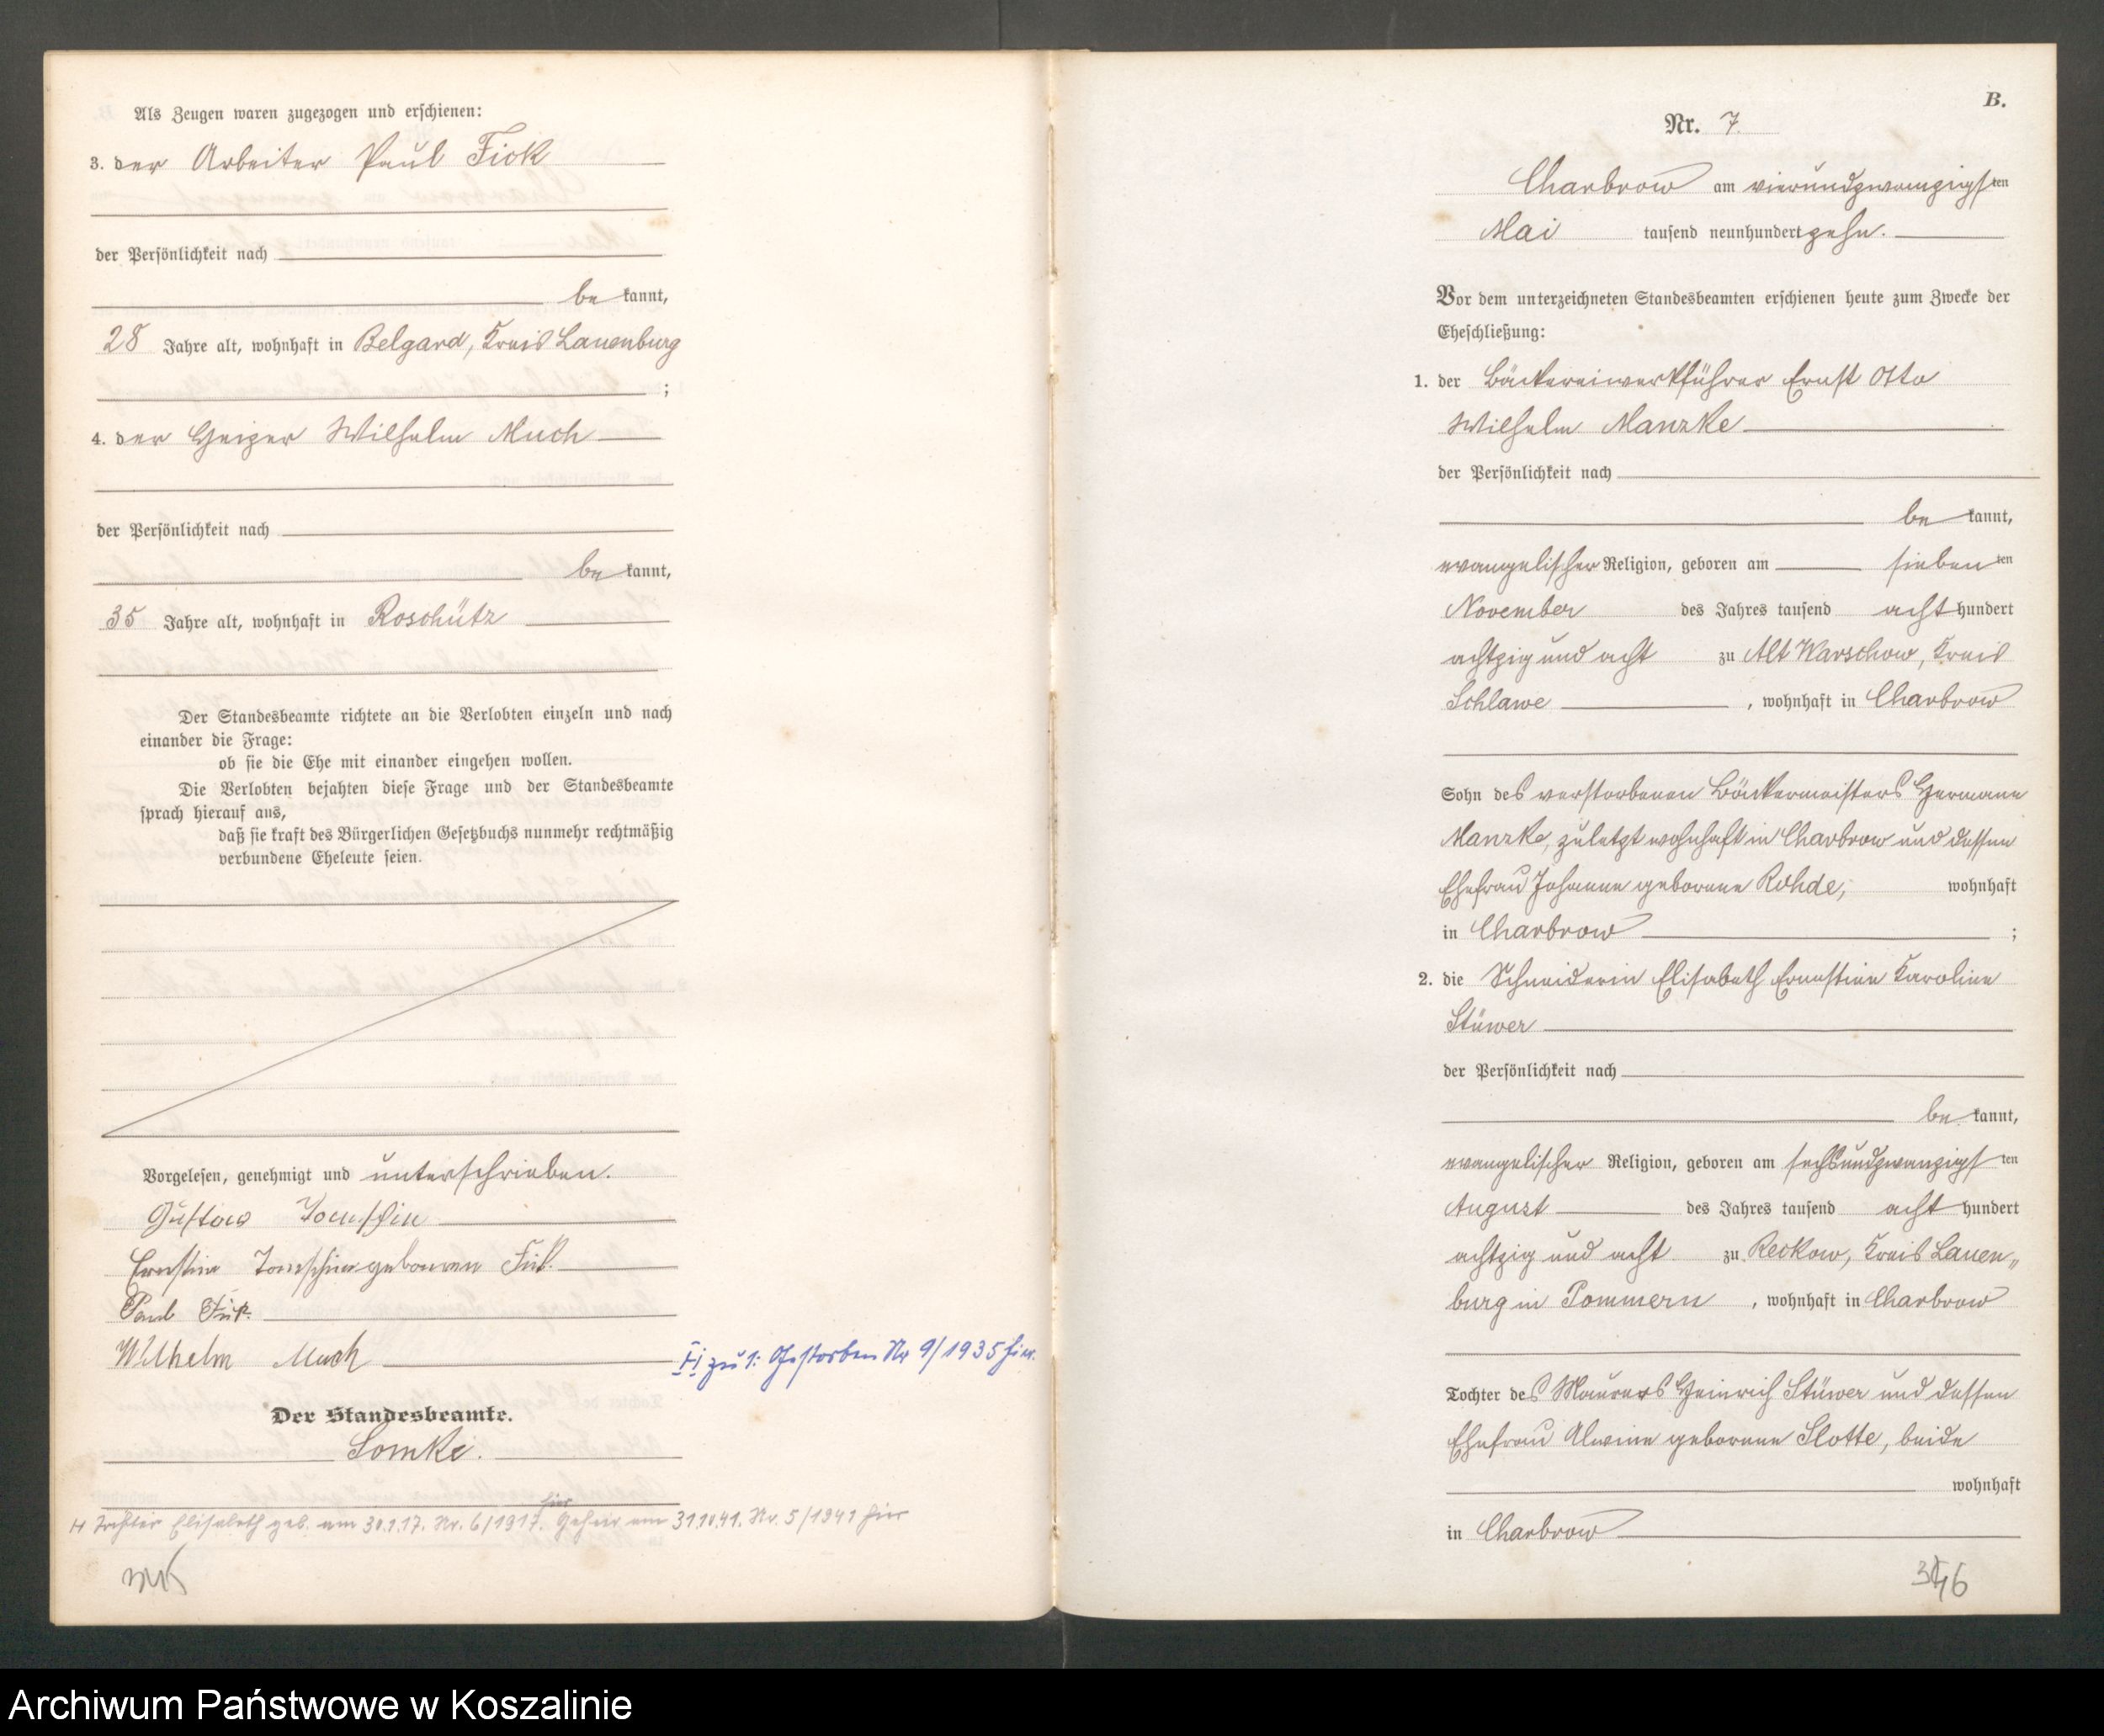 Als Zeugen waren zugezogen und erschienen:
3. der Arbeiter Paul Fick
der Persönlichkeit nach
be kannt,
28 Jahre alt, wohnhaft in Belgard, Kreis Lauenburg
;
4. der Geiger Wilhelm Much
der Persönlichkeit nach
be kannt,
35 Jahre alt, wohnhaft in Roschütz
Der Standesbeamte richtete an die Verlobten einzeln und nach
einander die Frage:
ob sie die Ehe mit einander eingehen wollen.
Die Verlobten bejahten diese Frage und der Standesbeamte
sprach hierauf aus,
daß sie kraft des Bürgerlichen Gesetzbuchs nunmehr rechtmäßig
verbundene Eheleute seien.
Vorgelesen, genehmigt und unterschrieben.
Gustav
Ernstine geborenen Fick.
Paul Fick.
Wilhelm Much
H zu 1: Gestorben Nr 9/1935 hier.
Der Standesbeamte.
Lomke.
H Tochter Elisabeth geb. am 30.1.17. Nr. 6/1917. hier Geheir am 31.10.41. Nr. 5/1941 hier
B.
Nr. 7.
Charbrow am vierundzwanzigsten
Mai tausend neunhundert zehn.
Vor dem unterzeichneten Standesbeamten erschienen heute zum Zwecke der
Eheschließung:
1. der Bäckereiwerkführer Ernst Otto
Wilhelm Manzke
der Persönlichkeit nach
be kannt,
evangelischer Religion, geboren am siebenten
November des Jahres tausend acht hundert
achtzig und acht zu Alt Warschow, Kreis
Schlawe , wohnhaft in Charbrow
Sohn des verstorbenen Bäckermeisters Hermann
Manzke, zuletzt wohnhaft in Charbrow und dessen
Ehefrau Johanne geborene Rohde, wohnhaft
in Charbrow ;
2. die Schneiderin Elisabeth Ernestine Karoline
Stüwer
der Persönlichkeit nach
be kannt,
evangelischer Religion, geboren am sechsundzwanzigsten
August des Jahres tausend acht hundert
achtzig und acht zu Reckow, Kreis Lauen„
burg in Pommern , wohnhaft in Charbrow
Tochter des Maurers Heinrich Stüwer und dessen
Ehefrau Alwine geborene Slotte, beide
wohnhaft
in Charbrow
346
Archiwum Państwowe w Koszalinie